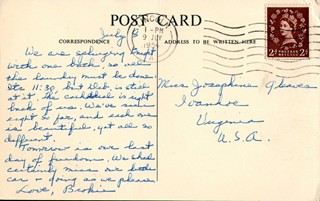 POST CARD
CORRESPONDENCE
ADDRESS TO BE WRITTEN HERE
July 8
1 - PM
9 JLY
We are splurging tonight
with one bath, so
the laundry must be done.
It's 11:30, but Deb. is still
at it. The cathedral is right
back of us. We've seen
eight so far, and each one
is beautiful, yet all so
different.
Tomorrow is our last
day of freedom. We shall
certainly miss our
car & doing as we please
Love,
Miss Josephine
Ivanhoe
Virginia
U.S.A.
2d
POSTAGE REVENUE
2d